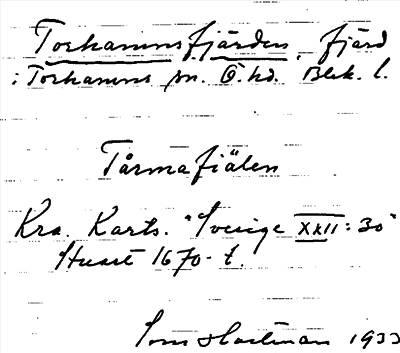 Torhamnsfjärden, fjärd
i Torhamns sn. Ö. hd. Blek. l.
Tårmafiälen
Kra. Kart. "Sverige XXII: 30"
1670-t.
1933